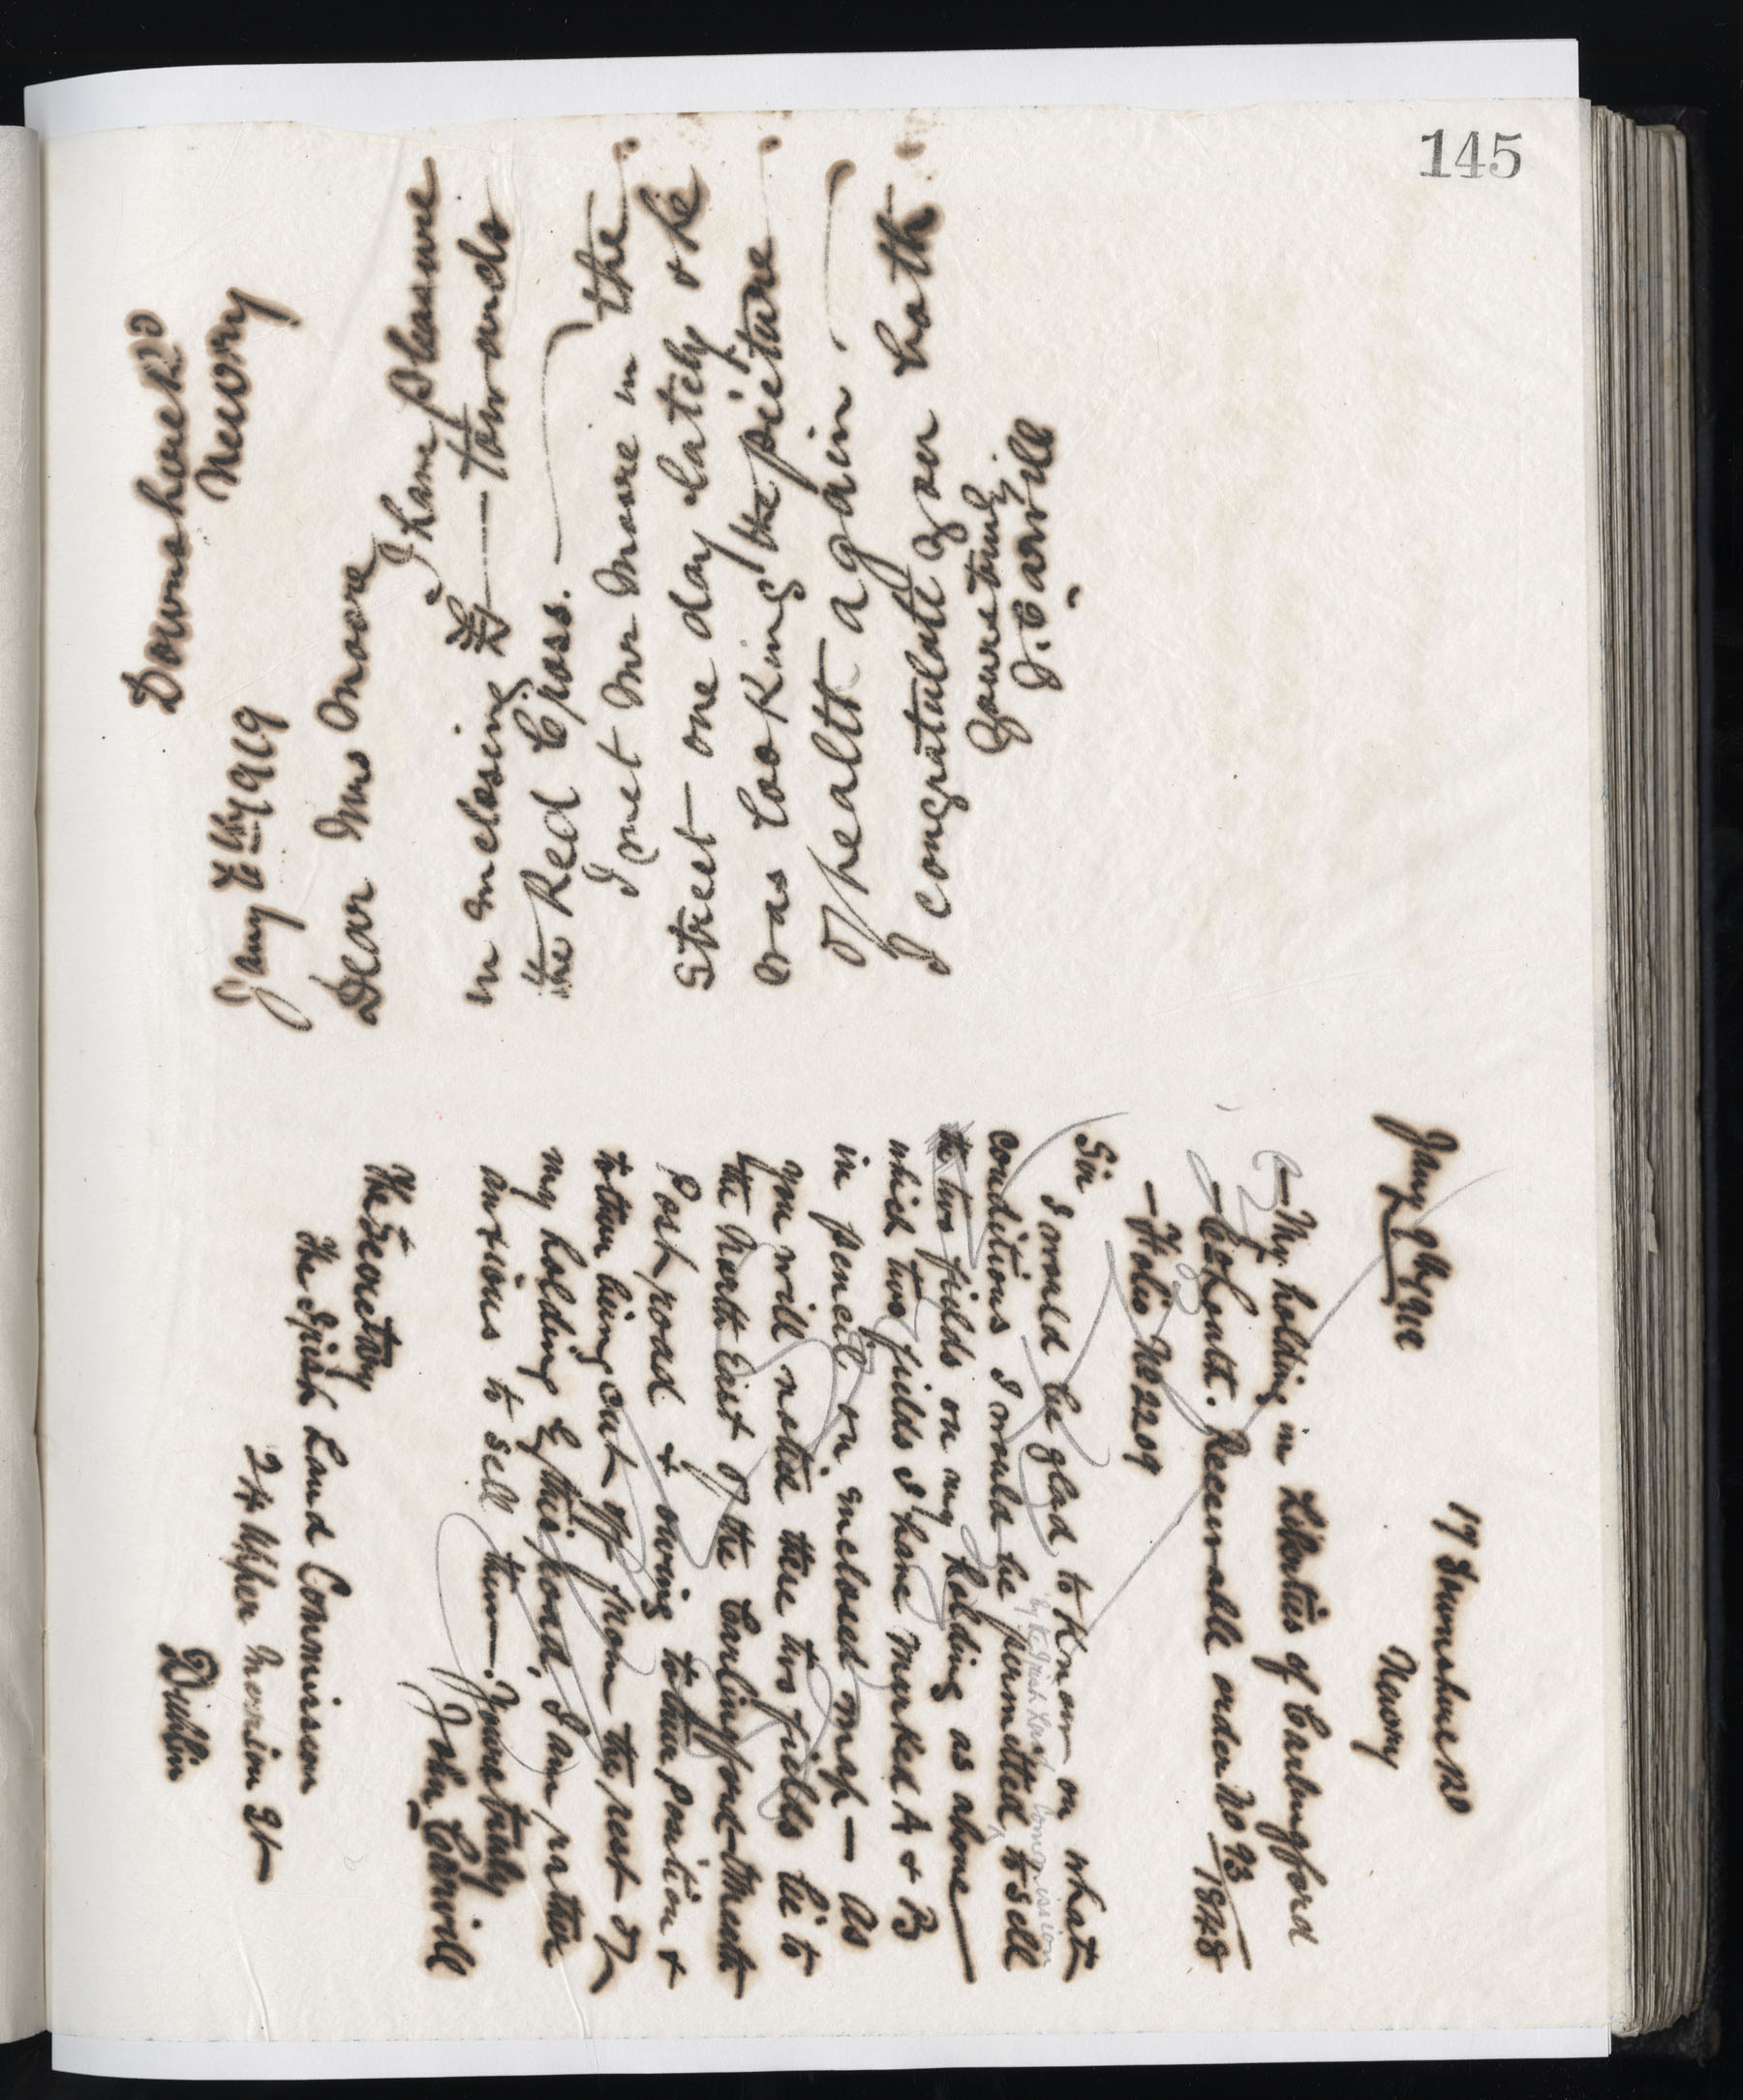 145
Downshire Rd
Newry
Jany 7th 1919
Dear Mrs Moore
I have pleasure
in enclosing £ — towards
the Red Cross.
I met Mr Moore in the
street one day lately & he
was looking the picture
of health again.
I congratulate you both
Yours truly
J. Carvill
17 Downshire Rd
Newry
Jany 9th 1919
My holding in Liberties of Carlingford
Receivable order No 93
1848
Folio No 2209
Sir
I would be glad to know on what
by the Irish Land Commission
conditions I would be permitted to sell
the two fields on my holding as above
which two fields I have marked A & B
in pencil on enclosed map — As
you will notice these two fields lie to
the North East of the Carlingford-Omeath
Post road & owing to their position &
to their being cut off from the rest of
my holding by this road, I am rather
anxious to sell them. Yours truly
John Carvill
The Secretary
The Irish Land Commission
24 Upper Merrion St
Dublin